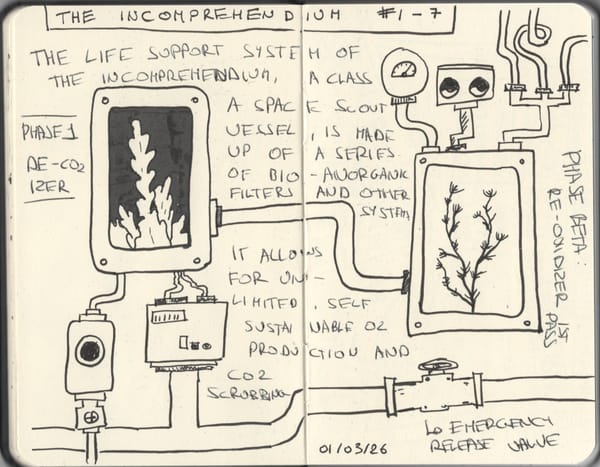 THE INCOMPREHENDIUM #1-7
THE LIFE SUPPORT SYSTEM OF
THE INCOMPREHENDIUM, A CLASS
A SPACE SCOUT
VESSEL, IS MADE
UP OF A SERIES
OF BIO-ANORGANIC
FILTERS AND OTHER
SYSTEM
IT ALLOWS
FOR UNI-
LIMITED, SELF
SUSTAINABLE O2
PRODUCTION AND
CO2
SCRUBBING
PHASE 1
DE-CO2
IZER
PHASE BETA:
RE-OXIDIZER
1st PASS
EMERGENCY
RELEASE VALVE
01/03/26